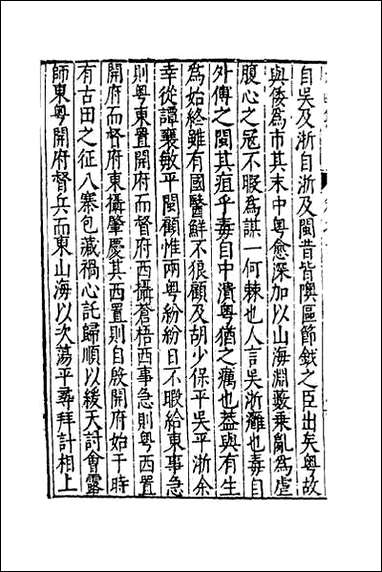 自吴及浙自浙及閩昔皆隩區節鉞之臣出矣粤故
與倭爲市其末中粤愈深加以山海淵藪乗亂爲虐
腹心之冦不暇爲謀一何棘也人言吴浙灘也毒自
外傅之閩其疽乎毒自中潰粤猶之癘也葢與有生
爲始終雖有國醫鮮不狼顧及胡少保平吴平浙余
幸從譚襄敏平閩顧惟兩粤紛紛日不暇給東事急
則粤東置開府而督府西攝蒼梧西事急則粤西置
開府而督府東攝肇慶其西置則自殷開府始于時
有古田之征八寨包藏禍心託歸順以緩天討㑹露
師東粤開府督兵而東山海以次蕩平尋拜計相上